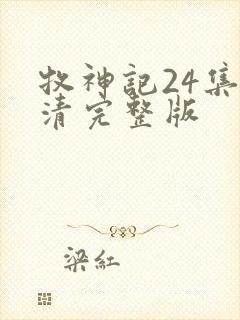 牧神記24集
清完整版
梁紅